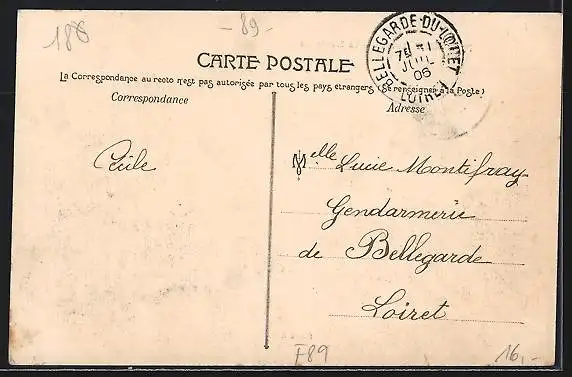 188
-89-
CARTE POSTALE
La Correspondance au recto n'est pas autorisée par tous les pays étrangers (Se renseigner à la Poste)
BELLEGARDE-DU-LOIRET
7E 31
JUIL
06
LOIRET
Correspondance
Adresse
Cécile
Melle Lucie Montifray
Gendarmerie
de Bellegarde
Loiret
F89
16,-